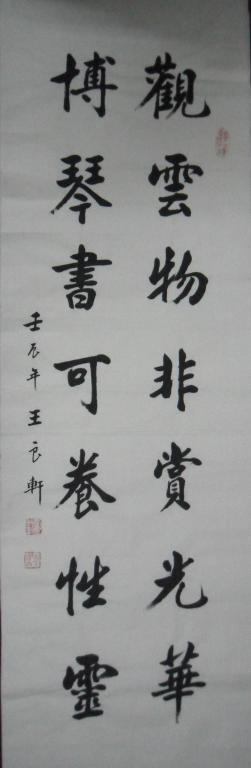 觀雲物非賞光華
博琴書可養性靈
壬辰年王良軒